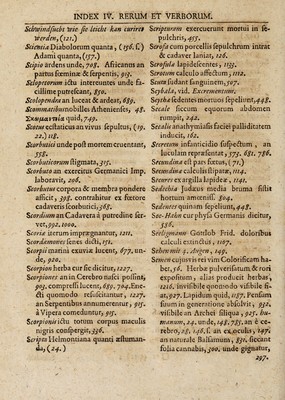 INDEX IV. RERUM ET VERBORUM.
Schwindsucht wie sie leicht han curirt
werden, (121.)
Scientia Diabolorum quanta, (156. ſ.)
Adami quanta, (157.)
Scipio ardens unde, 708. Africanus an
partus fœminæ & serpentis, 913.
Sclopetorum ictu intereuntes unde fa-
cillime putreſcant, 850.
Scolopendra an lucens & ardeat, 689.
Scammatibus nobilles Athenienses, 48
quid, 749.
Scotus ecstaticus an vivus sepultus, (19.
22.) 118.
Scorbutici unde post mortem cruentant,
558.
Scorbuticorum stigmata, 315.
Scorbuto an exercitus Germanici Imp.
laboravit, 206.
Scorbutus corpora & membra pondere
afficit, 398. contrahitur ex fœtore
cadaveris scorbutici, 368.
Scordium an Cadavera à putredine ser-
vet, 992. 1000.
Scoria iterum imprægnantur, 1211.
Scordamoris senes ducti, 151.
Scorpii marini exuviæ lucent, 677. un-
de, 920.
Scorpion herba cur sic dicitur, 1227.
Scorpiones an in Cerebro nasci possint,
905. compressi lucent, 689. 704. Ene-
cti quomodo resuscitantur, 1227.
an Serpentibus annumerentur, 905.
à Vipera comeduntur, 905.
Scorpionis ictu totum corpus maculis
nigris conspergit, 336.
Scripta Helmontiana quanti æstuman-
da, (24.)
Scripturam exercuerunt mortui in se-
pulchris, 465.
Scrofa cum porcellis sepulchrum intrat
& cadaver laniat, 126.
Scrofula lapidescentes, 1135.
Scrotum calculo affectum, 1112.
Scuta sudant sanguinem, 507.
Scybala, vid. Excrementum.
Scytha sedentes mortuos sepeliunt, 448.
Secale siccum equorum abdomen
rumpit, 242.
Secalis anathymiasis faciei palliditatem
inducit, 162.
Secretum infanticidio suspectum, an
luculam repræsentat, 575. 681. 786.
Secundina est pars fœtus, (71.)
Secundina calculis stipata, 1114.
Securis ex argilla lapidea, 1142.
Sedechia Judæus media bruma sistit
hortum amœnum, 804.
Sedentes quinam sepeliunt, 448.
See-Hahn cur physa Germanis dicitur,
556.
Seelsgmann Gottlob Frid. doloribus
calculi extinctus, 1107.
Sehemenii, 2. Jungen, 149.
Semen cujusvis rei vim Colorificam ha-
bet, 76. Herbæ pulverisatum & rori
expositum, alias producit herbas,
1216. invisibile quomodo visibile fi-
at, 927. Lapidum quid, 1187. Pensum
suum in generatione absolvit, 921.
visibile an Archei siliqua, 925. hu-
manum, 24. unde, 148. 785. an è ce-
rebro, 26. 146. ſ. an ex oculis, 147.
an naturale Balsamum, 852. siccant
folia cannabis, 500. unde gignatur,
297.